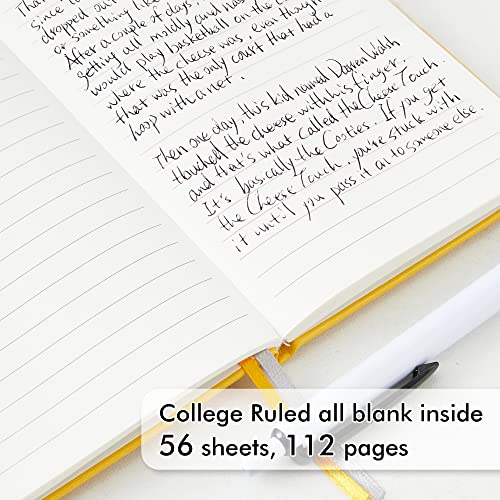 That
since
dropped out
or something
After a couple of days,
getting all moldy and
would play basketball on the
where the cheese was, even though
that was the only court that had a
hoop with a net.
Then one day, this kid named Darren Walsh
touched the cheese with his finger,
and that's what called the Cheese Touch.
It's basically the Costies. If you get
the Cheese Touch, you're stuck with
it until you pass it on to someone else.
College Ruled all blank inside
56 sheets, 112 pages